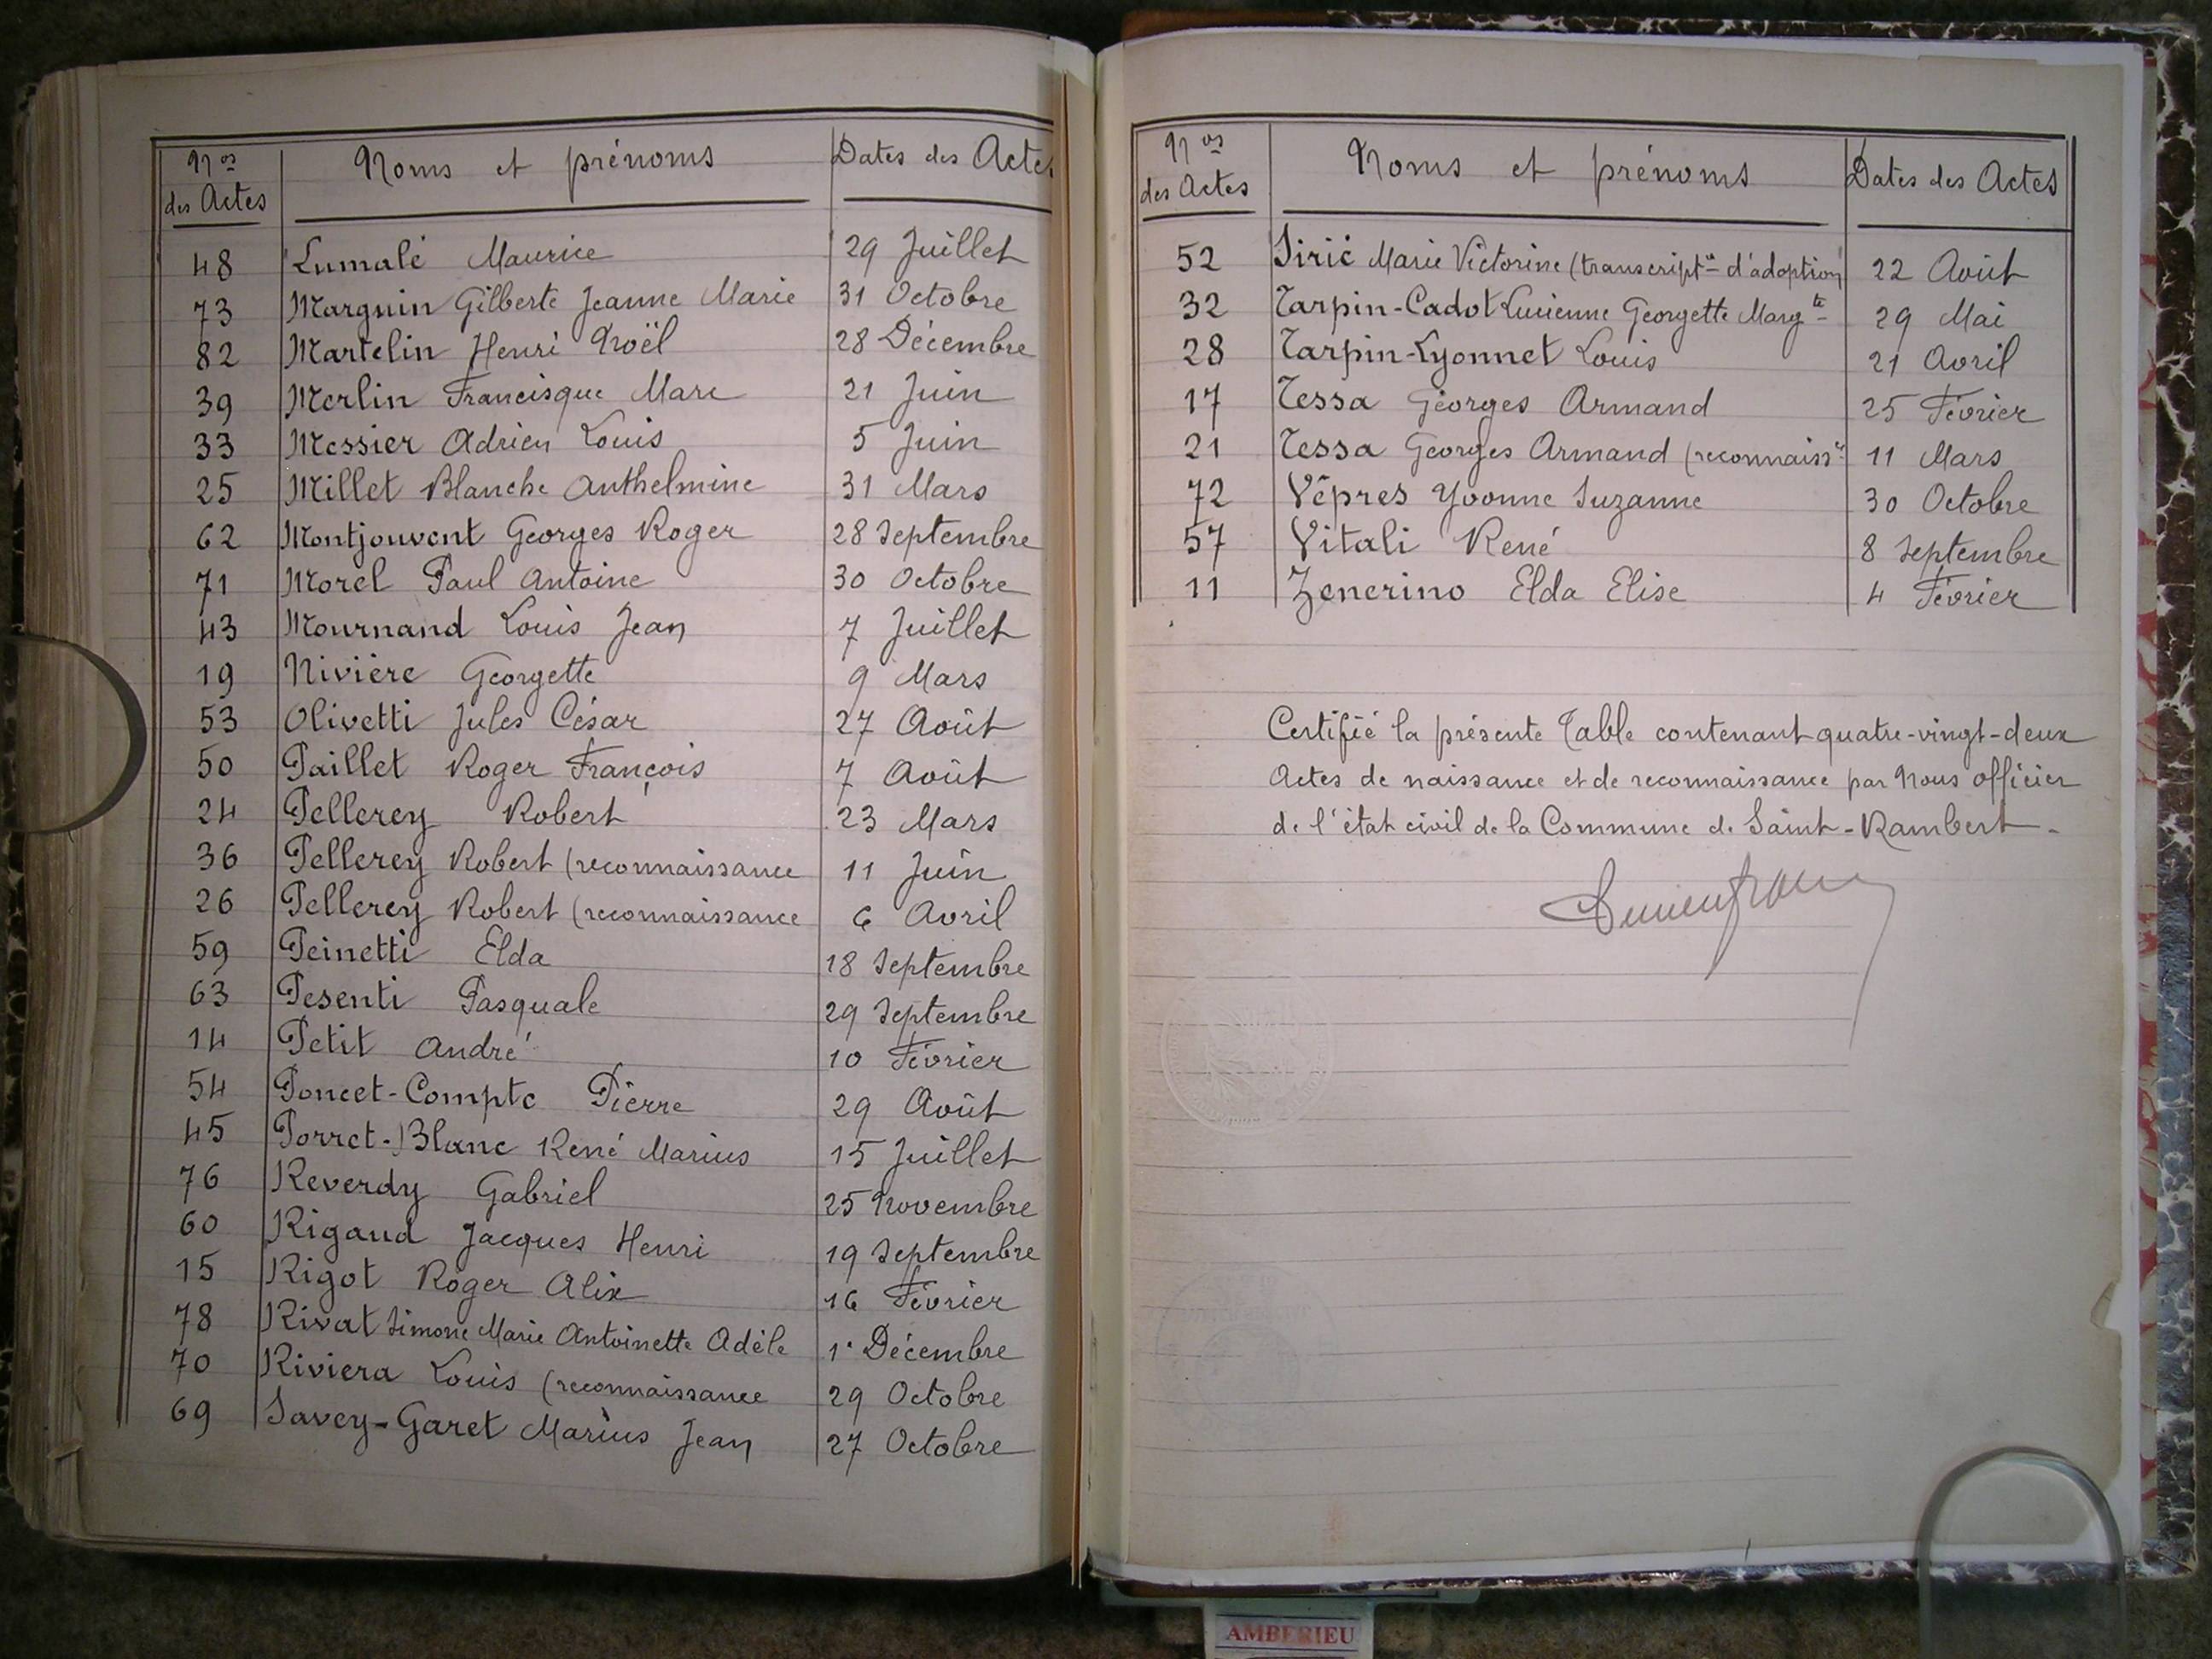 Nos des Actes Noms et prénoms Dates des Actes
48 Lumalé Maurice 29 Juillet
73 Marguin Gilberte Jeanne Marie 31 Octobre
82 Martelin Henri Noël 28 Décembre
39 Merlin Francisque Marc 21 Juin
33 Messier Adrien Louis 5 Juin
25 Millet Blanche Anthelmine 31 Mars
62 Montjouvent Georges Roger 28 Septembre
71 Morel Paul Antoine 30 Octobre
43 Mournand Louis Jean 7 Juillet
19 Nivière Georgette 9 Mars
53 Olivetti Jules César 27 Août
50 Paillet Roger François 7 Août
24 Pellerey Robert 23 Mars
36 Pellerey Robert (reconnaissance 11 Juin
26 Pellerey Robert (reconnaissance 6 Avril
59 Peinetti Elda 18 Septembre
63 Pesenti Pasquale 29 Septembre
14 Petit André 10 Février
54 Poncet-Compte Pierre 29 Août
45 Porret-Blanc René Marius 15 Juillet
76 Reverdy Gabriel 25 Novembre
60 Rigaud Jacques Henri 19 Septembre
15 Rigot Roger Alix 16 Février
78 Rivat Simone Marie Antoinette Adèle 1er Décembre
70 Riviera Louis (reconnaissance 29 Octobre
69 Savey-Garet Marius Jean 27 Octobre
Nos des Actes Noms et prénoms Dates des Actes
52 Sirié Marie Victorine (transcripton d'adoption) 22 Août
32 Tarpin-Cadot Lucienne Georgette Margte 29 Mai
28 Tarpin-Lyonnet Louis 21 Avril
17 Tessa Georges Armand 25 Février
21 Tessa Georges Armand (reconnaissce 11 Mars
72 Vêpres Yvonne Suzanne 30 Octobre
57 Vitali René 8 Septembre
11 Zenerino Elda Elise 4 Février
Certifié la présente Table contenant quatre-vingt-deux
Actes de naissance et de reconnaissance par Nous officier
de l'état civil de la Commune de Saint-Rambert.
AMBERIEU